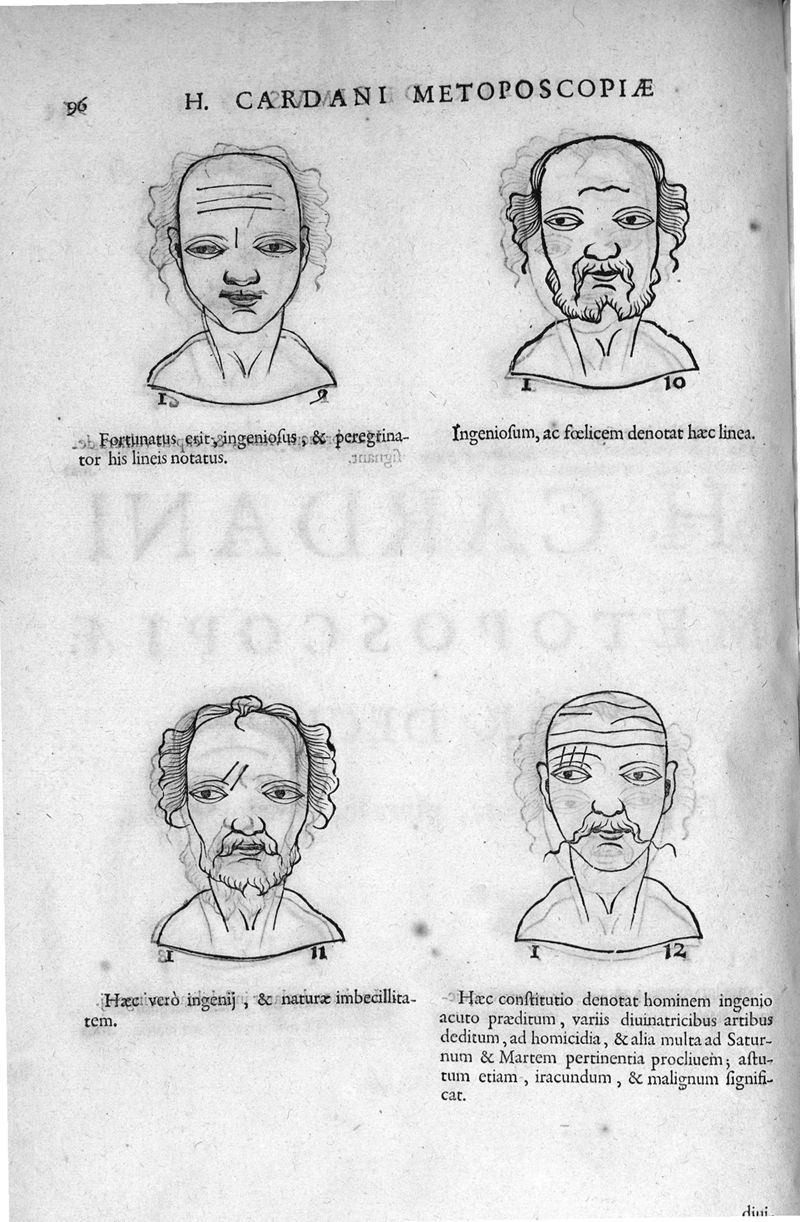 96
H. CARDANI METOPOSCOPIÆ
1 9
Fortunatus erit, ingeniosus, & peregrina-
tor his lineis notatus.
1 10
Ingeniosum, ac fœlicem denotat hæc linea.
1 11
Hæc verò ingenij, & naturæ imbecillita-
tem.
1 12
Hæc constitutio denotat hominem ingenio
acuto præditum, variis diuinatricibus artibus
deditum, ad homicidia, & alia multa ad Satur-
num & Martem pertinentia procliuem; astu-
tum etiam, iracundum, & malignum signifi-
cat.
diui-